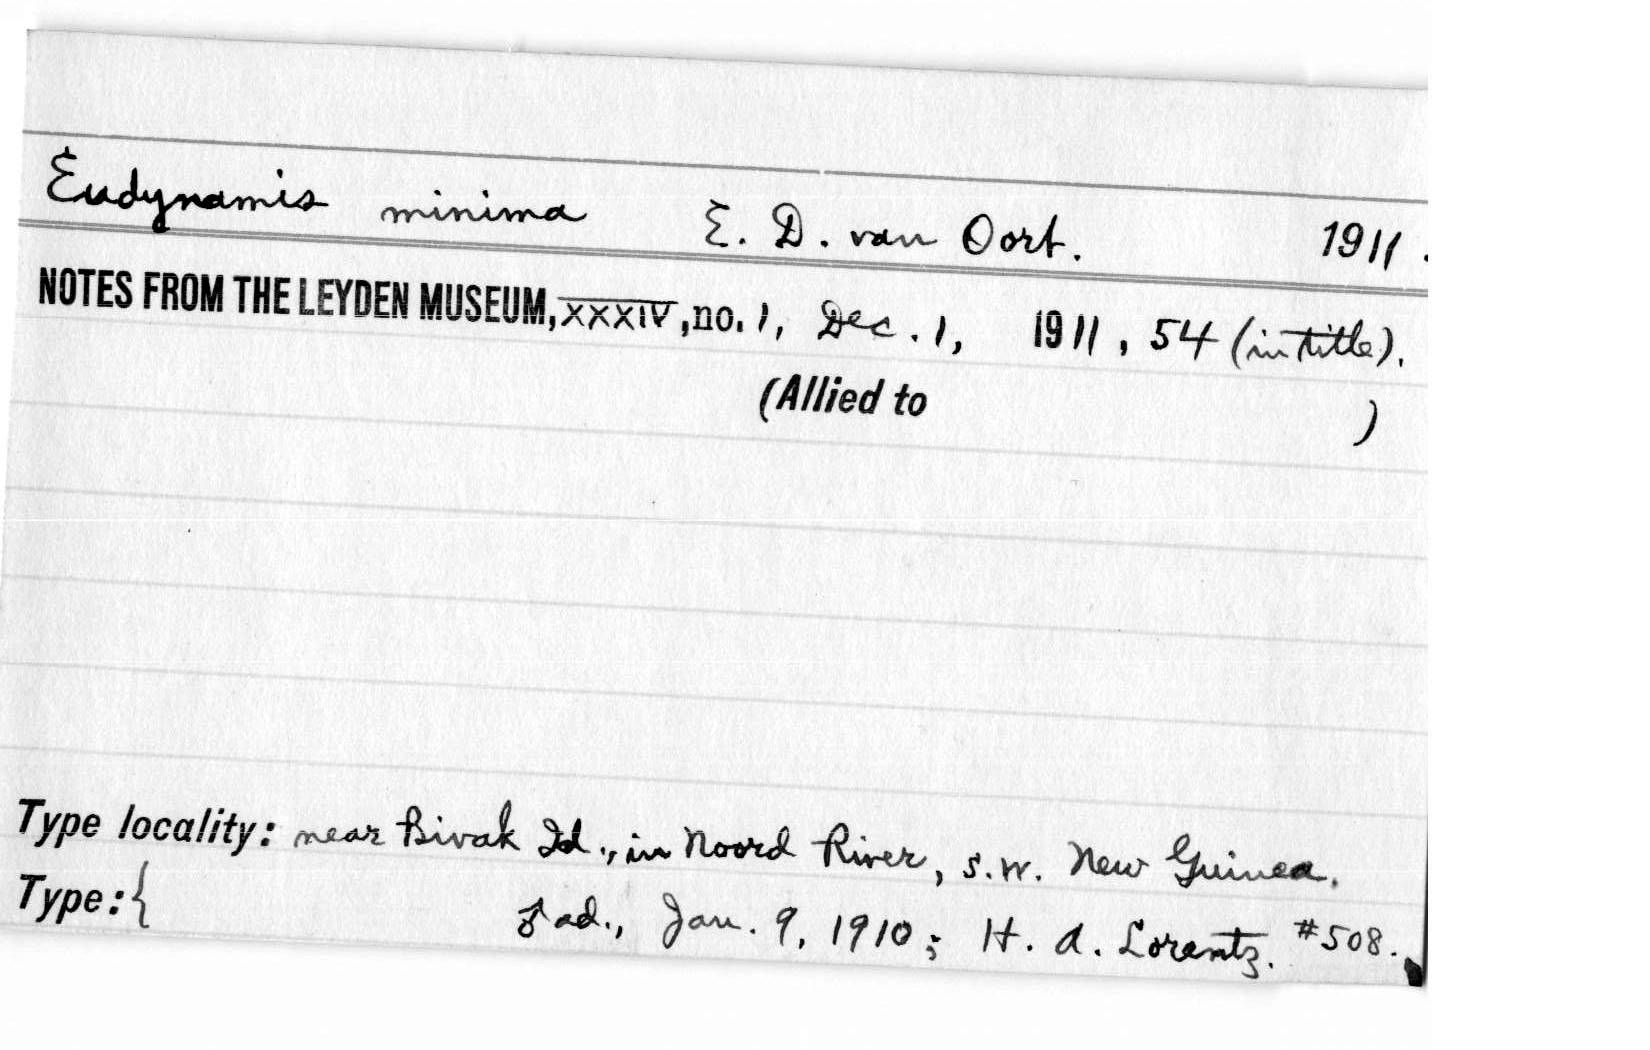 Eudynamis minima E. D. van Oort. 1911.
NOTES FROM THE LEYDEN MUSEUM, XXXIV, no. 1, Dec. 1, 1911, 54 (in title).
(Allied to )
Type locality: near Bivak Id., in Noord River, S.W. New Guinea.
Type: { ad., Jan. 9, 1910; H. A. Lorentz. #508.